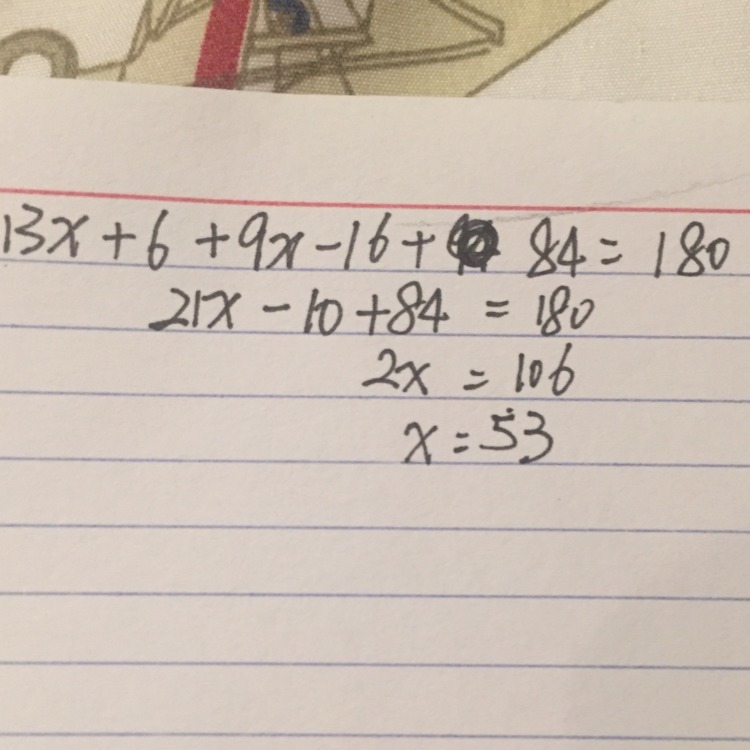 13x + 6 + 9x - 16 + 84 = 180
21x - 10 + 84 = 180
2x = 106
x = 53